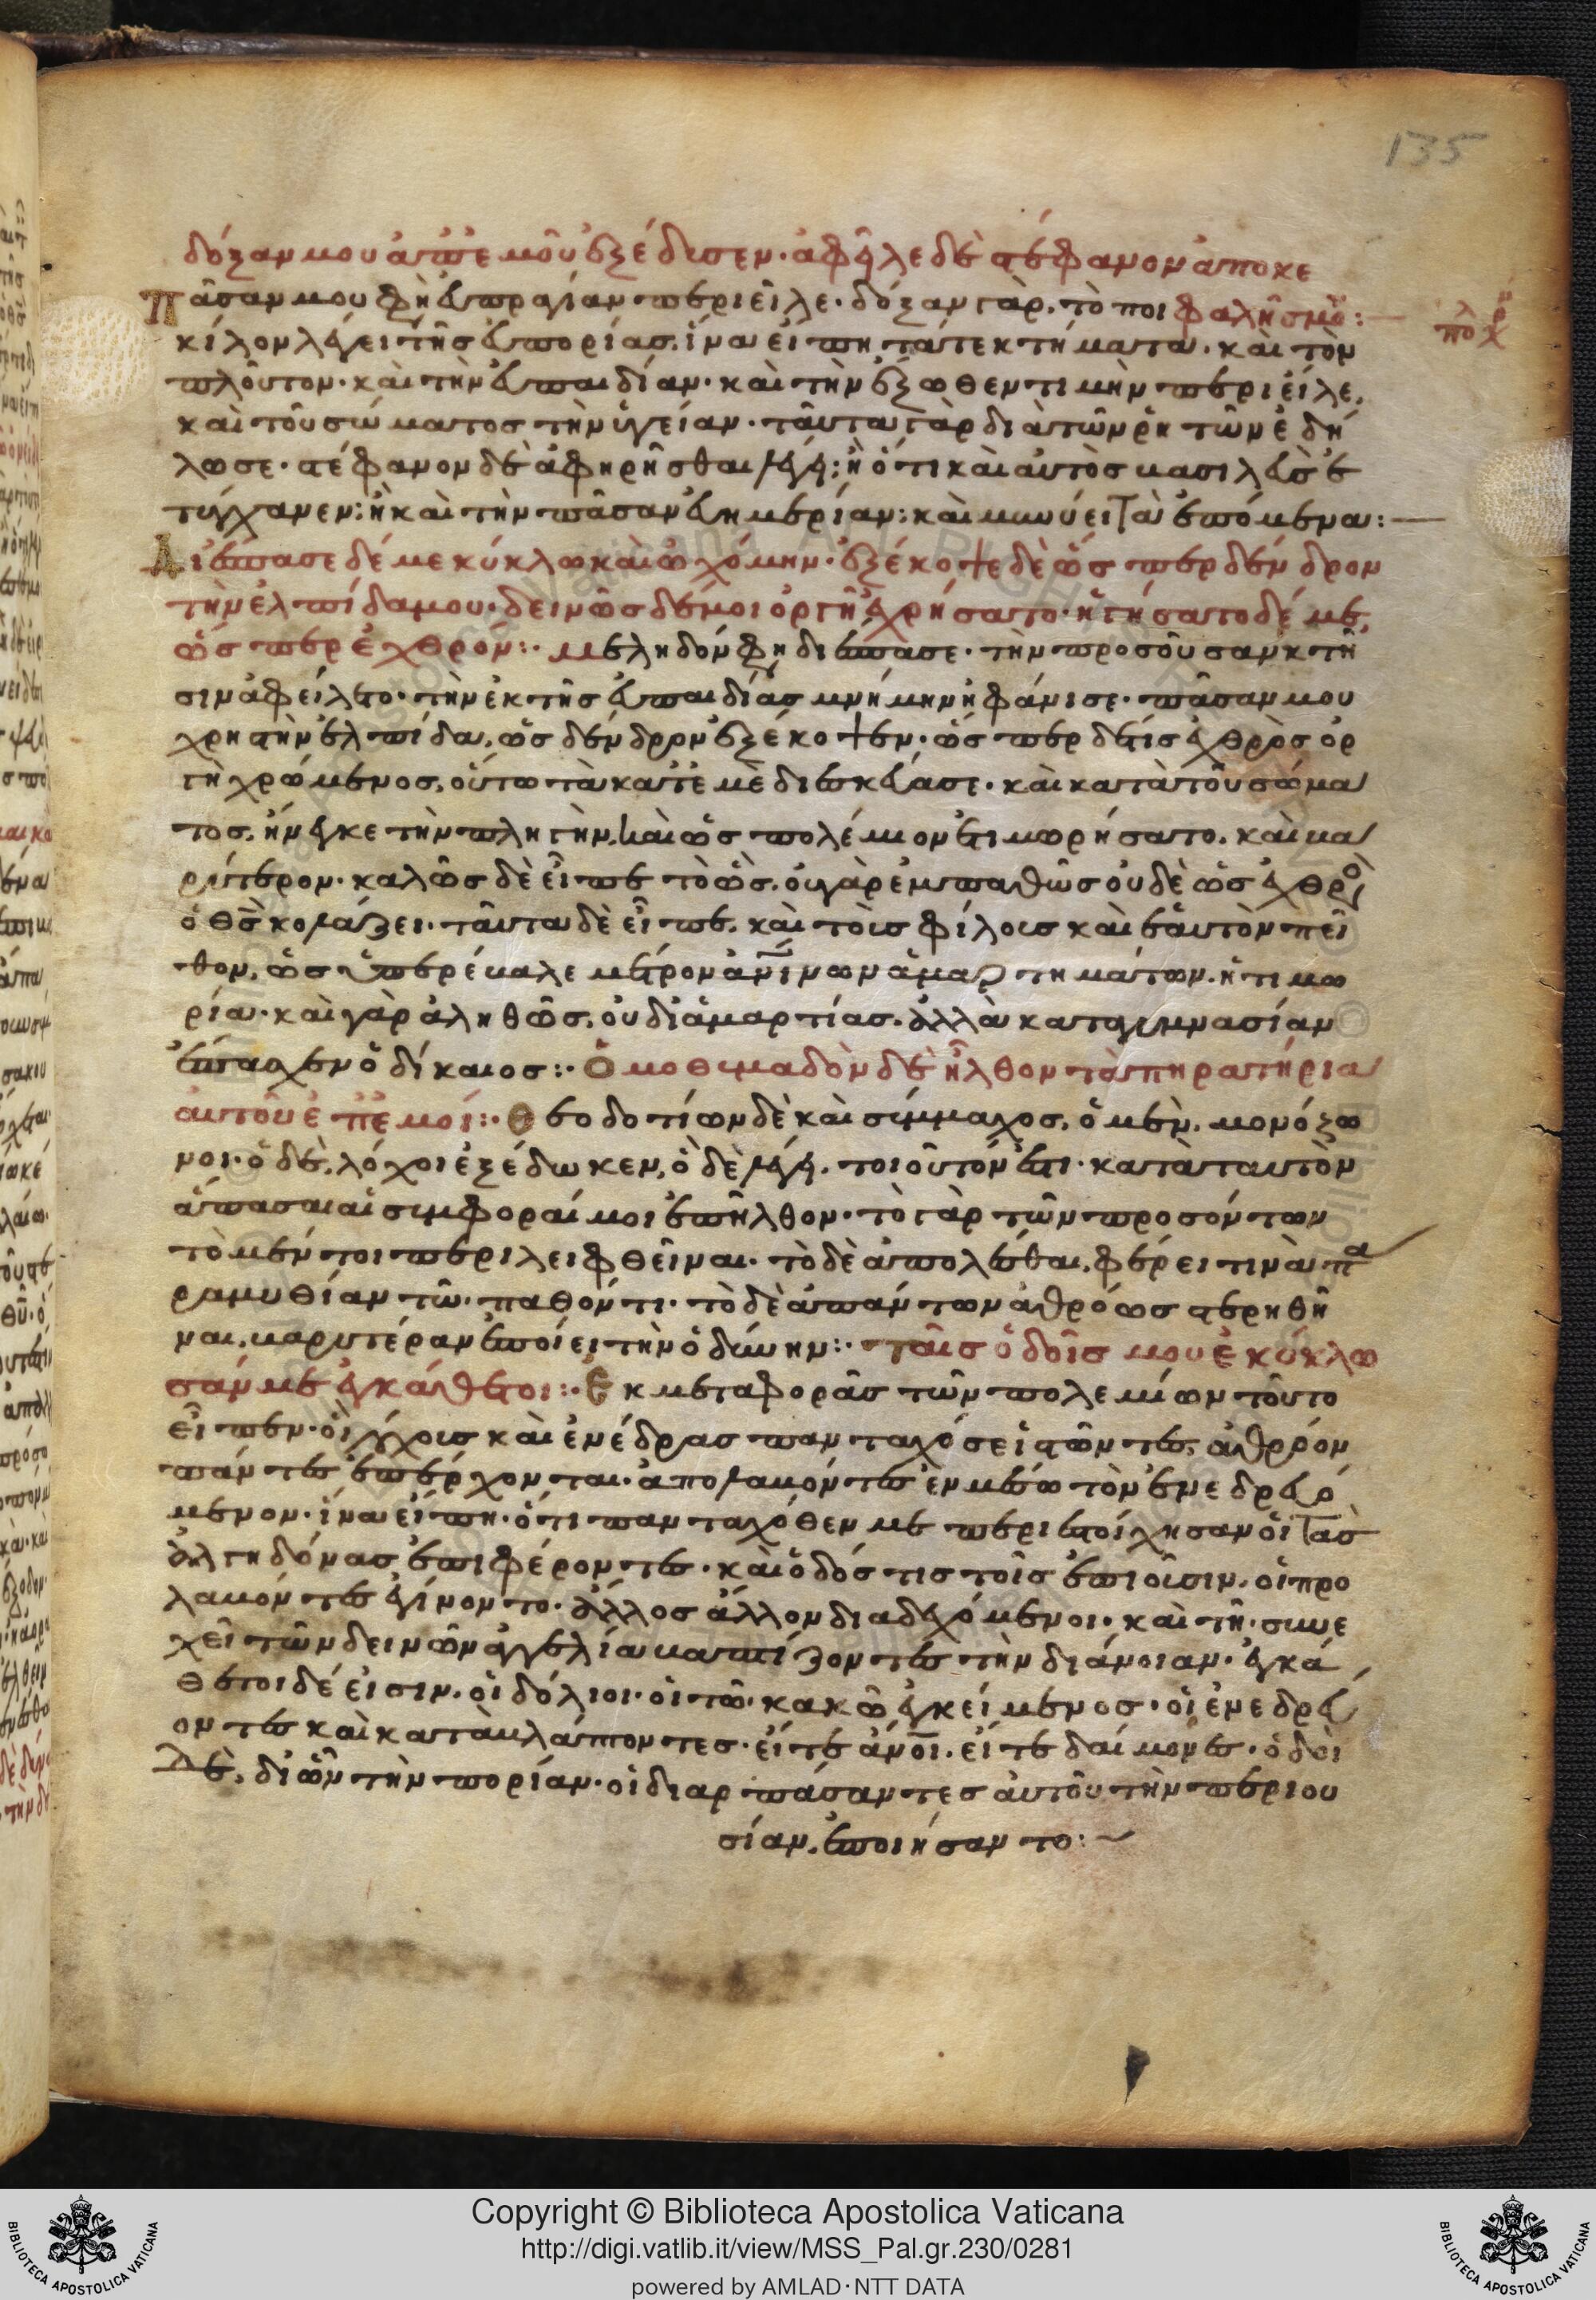 135
δόξαν μου ἀπ' ἐμοῦ ἐξέδυσεν· ἀφεῖλε δὲ στέφανον ἀπὸ κε
πᾶσάν μου φη εὐπραγίαν περιεῖλε· δόξαν γὰρ, τὸ ποι φαλῆς μου:
κίλον λέγει τῆς εὐπορίας, ἵνα εἴπη τά τε κτήματα· καὶ τὸν
πλοῦτον· καὶ τὴν εὐπαιδίαν· καὶ τὴν ἔξωθεν τιμὴν περιεῖλε,
καὶ τοῦ σώματος τὴν ὑγείαν· ταῦτα γὰρ διὰ τῶν ῥητῶν ἐδή
λωσε· στέφανον δὲ ἀφηρῆσθαι λέγει; ἢ ὅτι καὶ αὐτὸς βασιλεὺς ἐ
τύγχανεν; ἢ καὶ τὴν πᾶσαν εὐημερίαν; καὶ μηνύει τὰ ἑπόμενα:
Διέσπασε δέ με κύκλω καὶ ὠχόμην· ἐξέκοψε δὲ ὥσπερ δένδρον
τὴν ἐλπίδα μου· δεινῶς δέ μοι ὀργῆ ἐχρήσατο· ἡγήσατο δέ με,
ὥσπερ ἐχθρόν: μεληδόν φη διέσπασε· τὴν προσοῦσαν κτῆ
σιν ἀφείλετο· τὴν ἐκ τῆς εὐπαιδίας μνήμην ἠφάνισε· πᾶσάν μου
χρηστὴν ἐλπίδα, ὡς δένδρον ἐξέκοψεν· ὥσπερ δέ τις ἐχθρὸς ὀρ
γῆ χρώμενος, οὕτω τὰ κατ' ἐμὲ διεσκεύασε· καὶ κατὰ τοῦ σώμα
τος, ἤνεγκε τὴν πληγὴν, καὶ ὡς πολέμιον ἐτιμωρήσατο, καὶ βα
ρύτερον· καλῶς δὲ εἶπε τὸ ὡς, οὐ γὰρ ἐμπαθῶς οὐδὲ ὡς ἐχθροὺς
ὁ θς κολάζει· ταῦτα δὲ εἶπε, καὶ τοῖς φίλοις καὶ ἑαυτὸν πεί
θων, ὡς ὑπερέβαλε μέτρον ἀνίνων ἁμαρτημάτων, ἡ τιμω
ρία· καὶ γὰρ ἀληθῶς, οὐ δι' ἁμαρτίας, ἀλλὰ κατὰ γυμνασίαν
ἔπασχεν ὁ δίκαιος: Ὁμοθυμαδὸν δὲ ἦλθον τὰ πηρατήρια
αὐτοῦ ἐπ' ἐμοί: Θεοδοτίων δὲ καὶ σύμμαχος, ὁ μὲν, μονόζω
νοι· ὁ δὲ, λόχοι ἐξέδωκεν, ὃ δὲ λέγει, τοιοῦτόν ἐστι· κατὰ ταυτὸν
ἅπασαι αἱ συμφοραί μοι ἐπῆλθον· τὸ γὰρ τῶν προσόντων
τὸ μέν τοι περιλειφθεῖναι· τὸ δὲ ἀπολέσθαι, φέρει τινὰ πα
ραμυθίαν τῶ παθόντι· τὸ δὲ ἁπάντων ἀθρόως στερηθῆ
ναι, βαρυτέραν ἐποίει τὴν ὀδύνην: ταῖς ὁδοῖς μου ἐκύκλω
σάν με ἐγκάθετοι: Ἐκ μεταφορᾶς τῶν πολεμίων τοῦτο
εἶπεν· οἳ λόχους καὶ ἐνέδρας πανταχόσε ἱστῶντες, ἀθρόον
πάντες ἐπέρχονται· ἀπολαβόντες ἐν μέσω τὸν ἐνεδρευό
μενον· ἵνα εἴπη· ὅτι πανταχόθεν με περιεστοίχησαν οἱ τὰς
ἀλγηδόνας ἐπιφέροντες· καὶ ὁδός τις τοῖς ἐπιοῦσιν, οἱ προ
λαβόντες ἐγίνοντο· ἄλλος ἄλλον διαδεχόμενοι· καὶ τῆ συνε
χεῖ τῶν δεινῶν ἀγγελία βαπτίζοντες τὴν διάνοιαν· ἐγκά
θετοι δέ εἰσιν, οἱ δόλιοι· οἱ τῶ κακῶ ἐγκείμενος· οἱ ἐνεδρεύ
οντες καὶ καταβλάπτοντες· εἴτε ἄνοι, εἴτε δαίμονες· ὁδοὶ
δὲ, δι' ὧν τὴν πορίαν· οἱ διαρπάσαντες αὐτοῦ τὴν περιου
σίαν, ἐποιήσαντο:
Copyright © Biblioteca Apostolica Vaticana
http://digi.vatlib.it/view/MSS_Pal.gr.230/0281
powered by AMLAD·NTT DATA
BIBLIOTECA APOSTOLICA VATICANA
BIBLIOTECA APOSTOLICA VATICANA